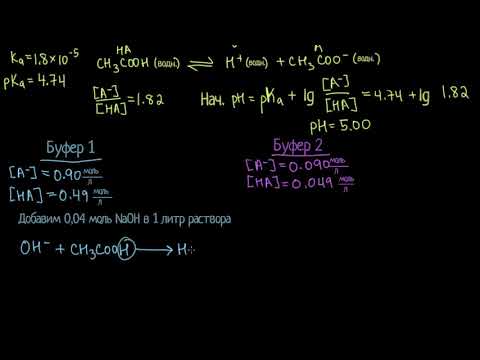 Ka = 1.8×10⁻⁵
HA
CH₃COOH (водн.) ⇌ H⁺ (водн.) + CH₃COO⁻ (водн.)
pKa = 4.74
[A⁻]/[HA] = 1.82
Нач. pH = pKa + lg [A⁻]/[HA] = 4.74 + lg 1.82
pH = 5.00
Буфер 1
[A⁻] = 0.90 моль/л
[HA] = 0.49 моль/л
Буфер 2
[A⁻] = 0.090 моль/л
[HA] = 0.049 моль/л
Добавим 0,04 моль NaOH в 1 литр раствора
OH⁻ + CH₃COOH → H